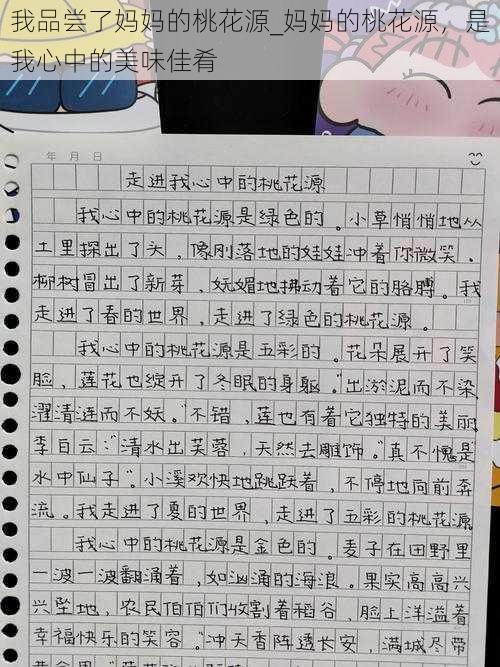 我品尝了妈妈的桃花源_妈妈的桃花源，是
我心中的美味佳肴
年 月 日
走进我心中的桃花源
我心中的桃花源是绿色的。小草悄悄地从
土里探出了头，像刚落地的娃娃冲着你微笑，
柳树冒出了新芽，妩媚地拂动着它的胳膊。我
走进了春的世界，走进了绿色的桃花源。
我心中的桃花源是五彩的。花朵展开了笑
脸，莲花也绽开了冬眠的身躯。"出淤泥而不染，
濯清涟而不妖。"不错，莲也有着它独特的美丽
李白云："清水出芙蓉，天然去雕饰。"真不愧是"
水中仙子"。小溪欢快地跳跃着，不停地向前奔
流。我走进了夏的世界，走进了五彩的桃花源
我心中的桃花源是金色的。麦子在田野里
一波一波翻涌着，如汹涌的海浪。果实高高兴
兴坠地，农民伯伯们收割着稻谷，脸上洋溢着
幸福快乐的笑容。"冲天香阵透长安，满城尽